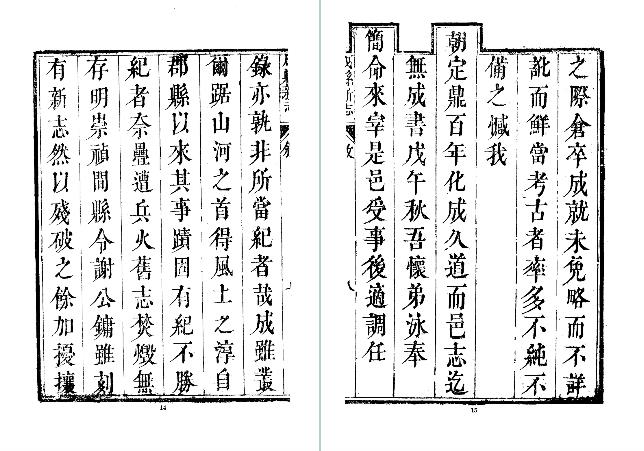 成縣新志 敘
錄亦孰非所當紀者哉成雖叢
爾踞山河之首得風土之淳自
郡縣以來其事蹟固有紀不勝
紀者奈疊遭兵火舊志焚燬無
存明崇禎間縣令謝公鏞雖刻
有新志然以殘破之餘加擾攘
14
之際倉卒成就未免略而不詳
訛而鮮當考古者率多不純不
備之憾我
朝定鼎百年化成久道而邑志迄
無成書戊午秋吾懷弟泳奉
簡命來宰是邑受事後適調任
成縣新志 敘
15